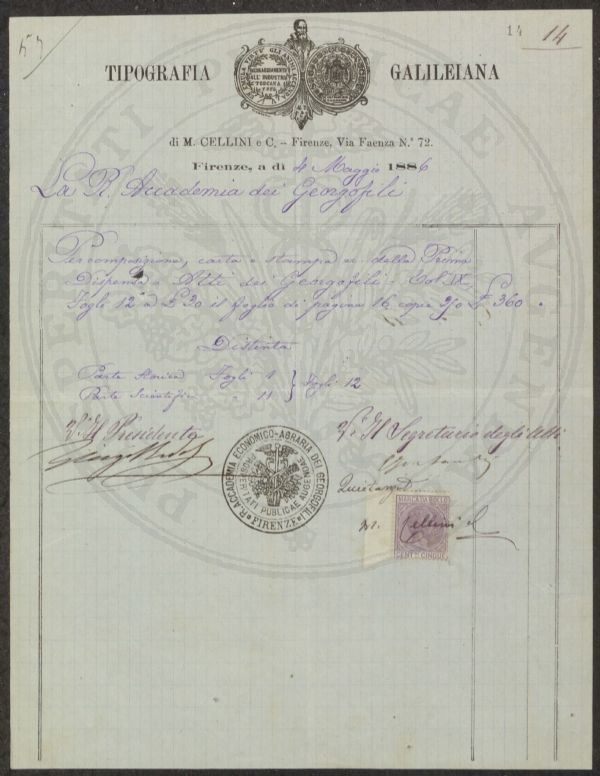 14 14
TIPOGRAFIA GALILEIANA
INCORAGGIAMENTO
ALL'INDUSTRIA
TOSCANA
di M. CELLINI e C. – Firenze, Via Faenza N.° 72.
Firenze, a dì 4 Maggio 1886
La R. Accademia dei Georgofili
Per composizione, carta e stampa della Prima
Dispensa Atti dei Georgofili - Vol. IX
Fogli 12 a £ 30 il foglio di pagine 16 copie £ 360.
Distinta
Parte Storica Fogli 1 } Fogli 12
Parte Scientifica " 11
V.° Il Presidente
V.° Il Segretario degli Atti
R. ACCADEMIA ECONOMICO-AGRARIA DEI GEORGOFILI
PROSPERITATI PUBLICAE AUGENDAE
FIRENZE
Quietanzato
MARCA DA BOLLO
M. Cellini e C.
CENT.MI CINQUE
PROSPERITATI PUBLICAE AUGENDAE